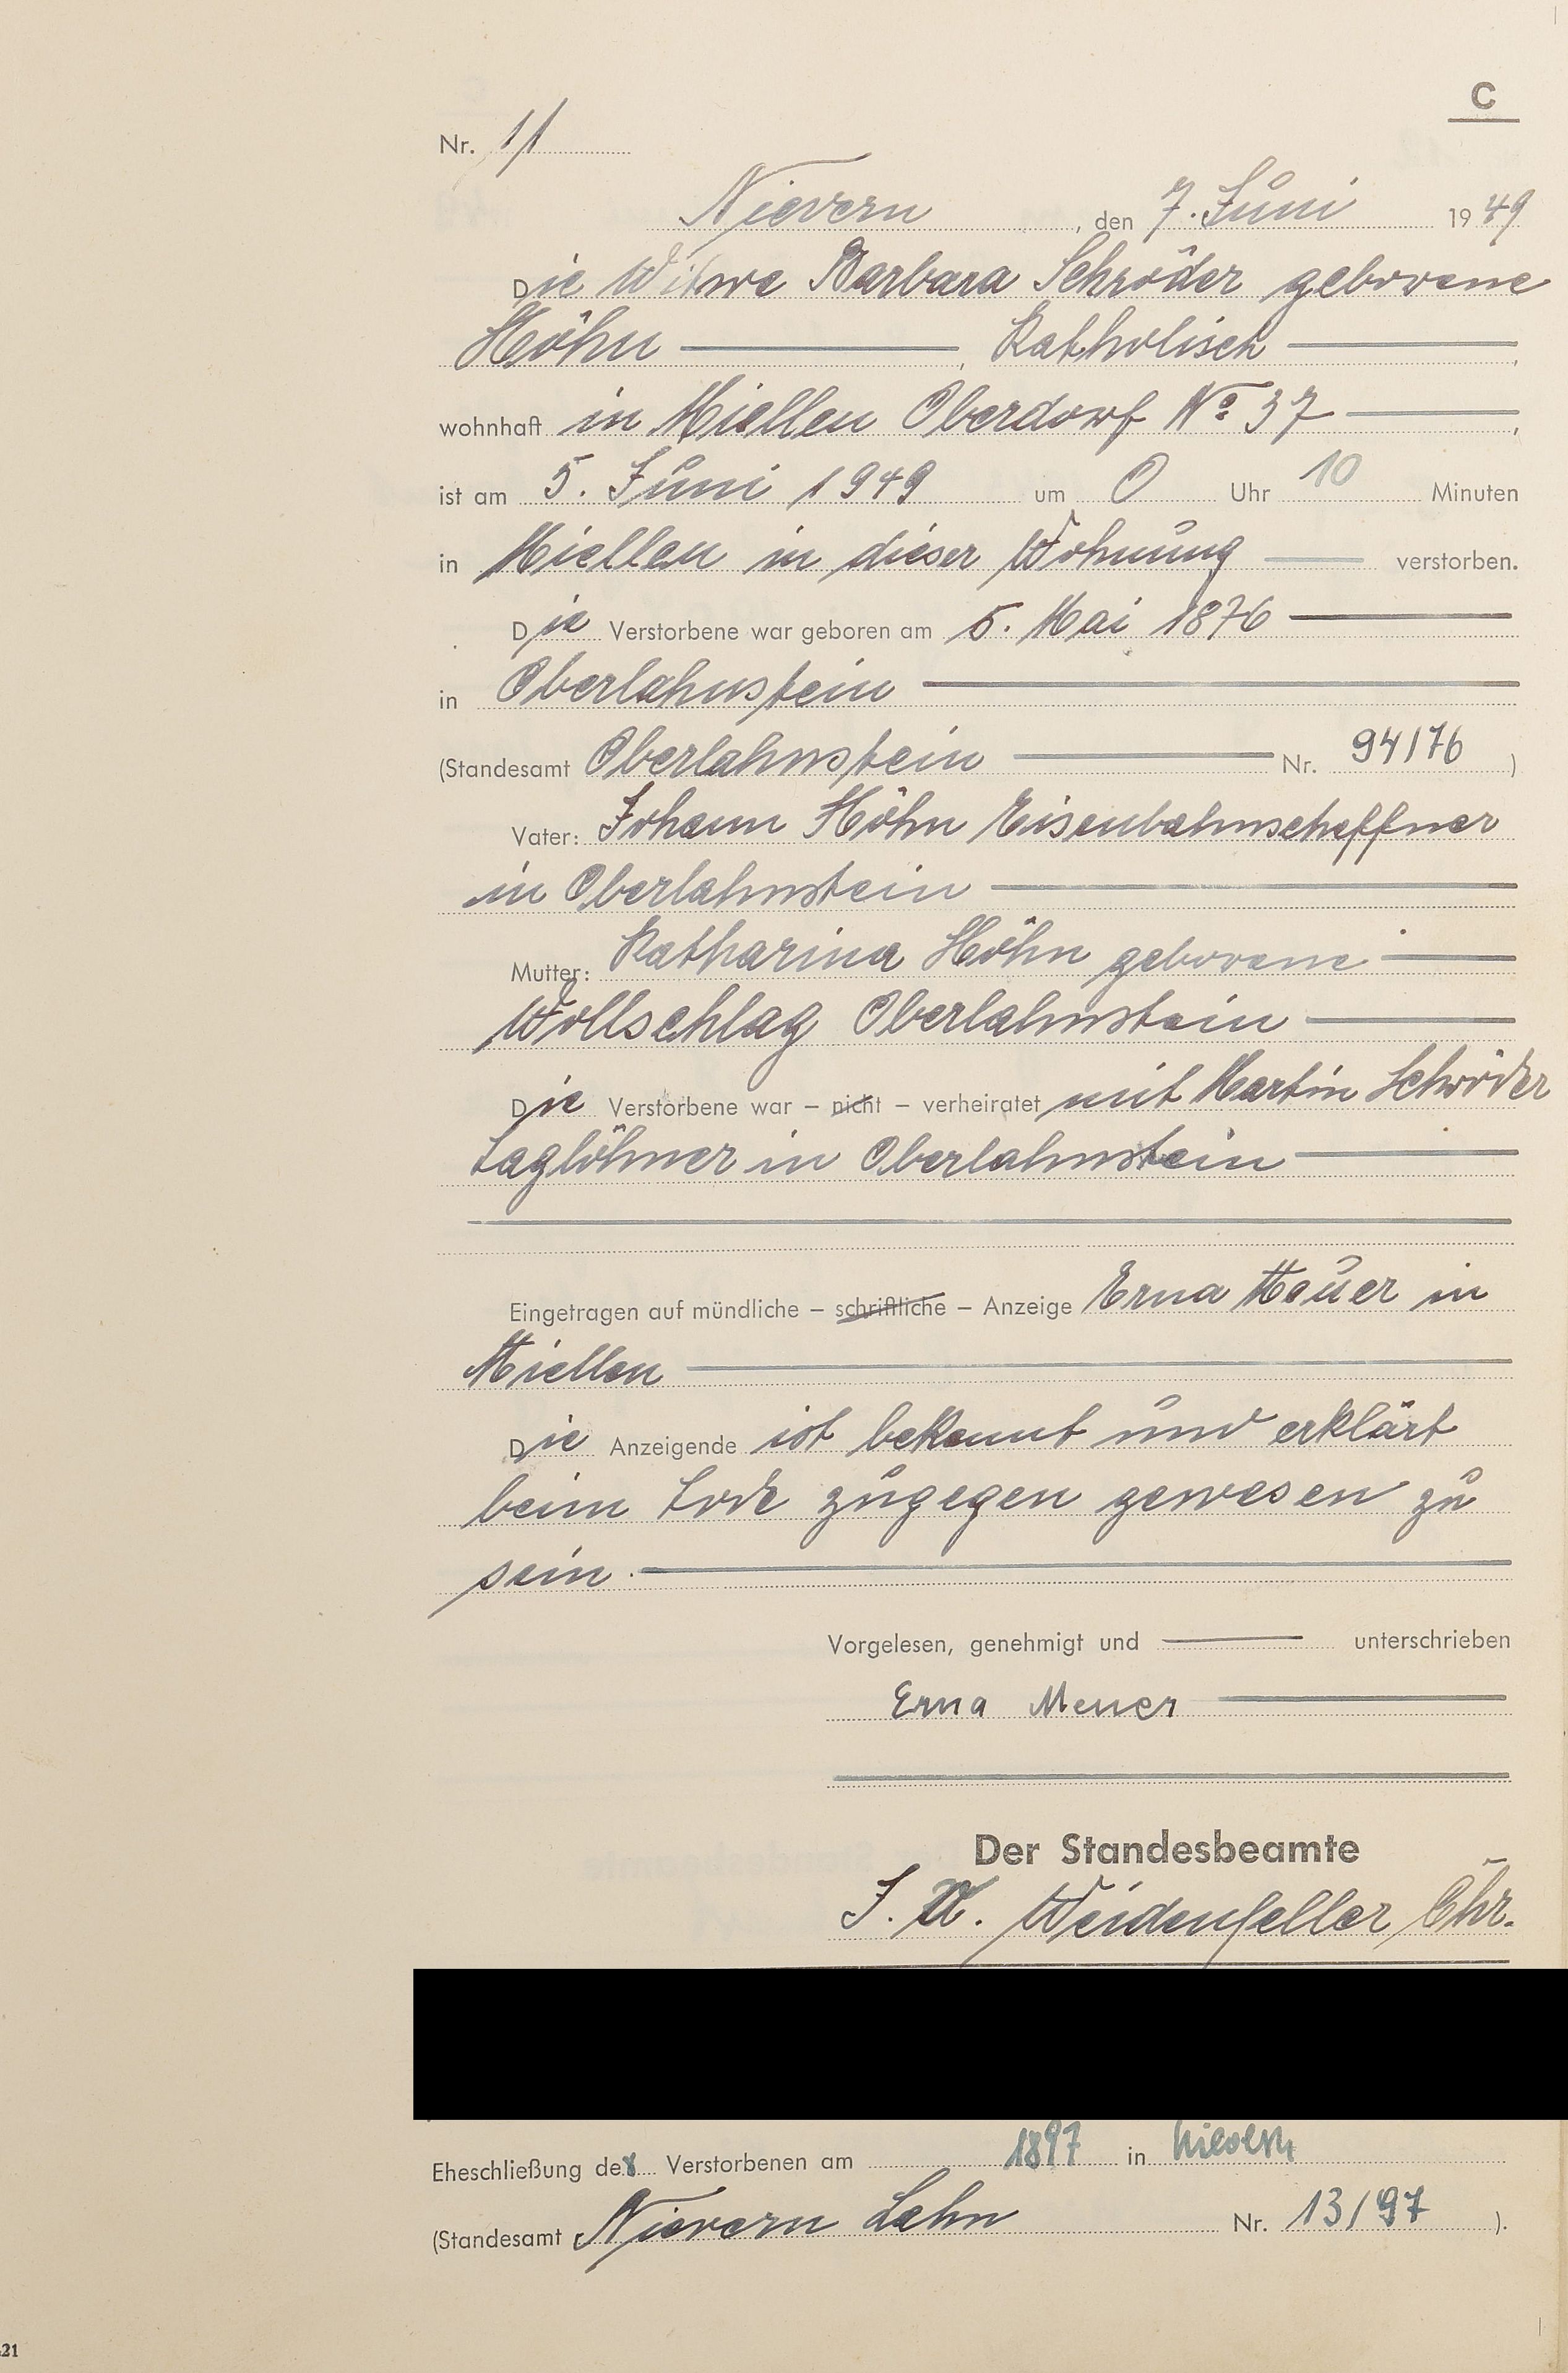 C
Nr. 11
Nievern, den 7. Juni 1949
Die Witwe Barbara Schröder geborene
Höhn, Katholisch,
wohnhaft in Miellen Oberdorf No 37,
ist am 5. Juni 1949 um 0 Uhr 10 Minuten
in Miellen in dieser Wohnung verstorben.
Die Verstorbene war geboren am 5. Mai 1876
in Oberlahnstein
(Standesamt Oberlahnstein Nr. 94/76)
Vater: Johann Höhn Eisenbahnscheffner
in Oberlahnstein
Mutter: Katharina Höhn geborene
Wollschlag Oberlahnstein
Die Verstorbene war – nicht – verheiratet mit Martin Schröder
Taglöhner in Oberlahnstein
Eingetragen auf mündliche – schriftliche – Anzeige Erna Meuer in
Miellen
Die Anzeigende ist bekannt und erklärt
beim Tode zugegen gewesen zu
sein.
Vorgelesen, genehmigt und unterschrieben
Erna Meuer
Der Standesbeamte
J. V. Weidenfeller, Chr.
Eheschließung der Verstorbenen am 1897 in Nievern
(Standesamt Nievern Lahn Nr. 13/97).
21